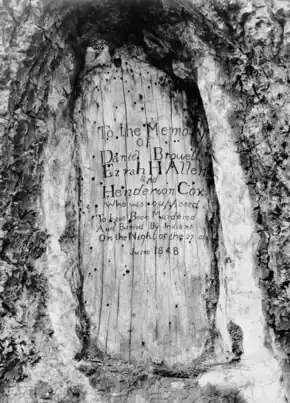 To the Memory
of
Daniel Browell
Ezrah H Allen
and
Henderson Cox
Who was supposed
To have Been Murdered
And Buried By Indians
On the Night of the 27
June 1848